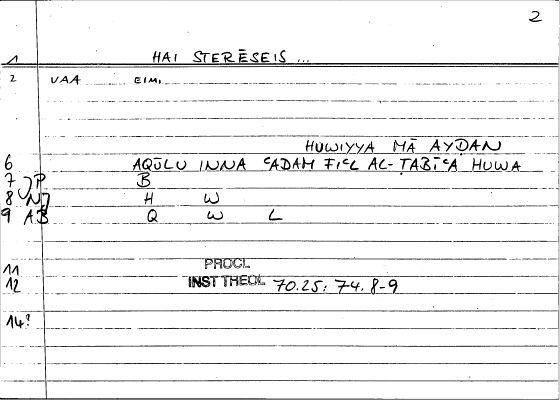 2
1 HAI STERĒSEIS ...
2 VAA EIMI
HUWIYYA MĀ AYḌAN
6 AQŪLU INNA ʿADAM FIʿL AL-ṬABĪʿA HUWA
7 JP B
8 NJ H W
9 AB Q W L
11 PROCL
12 INST THEOL 70.25; 74.8-9
14?